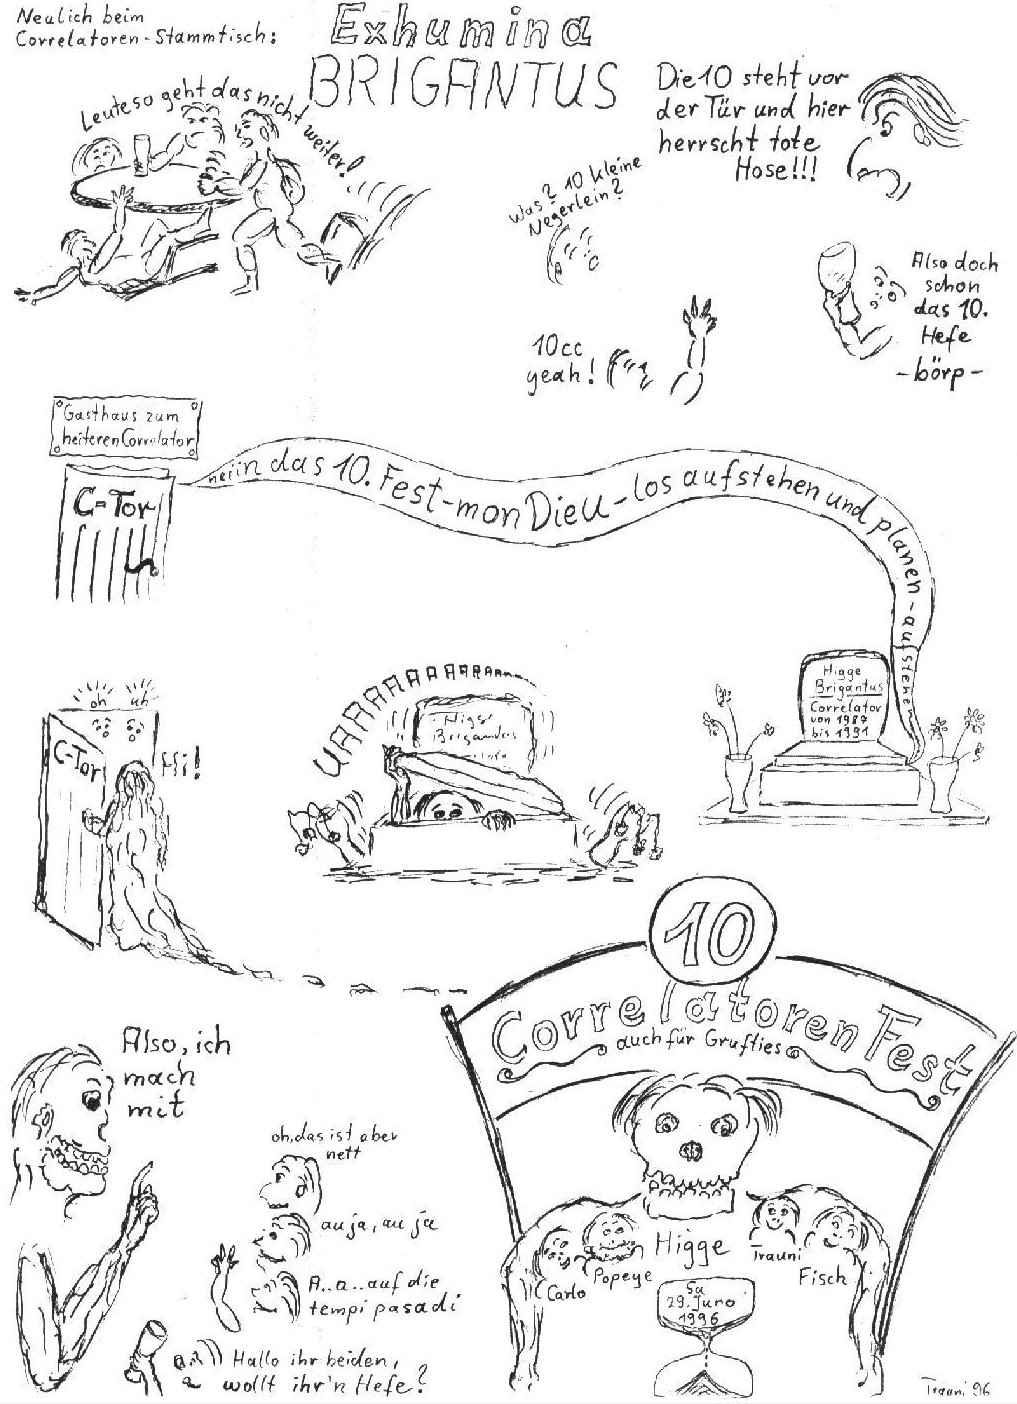 Neulich beim
Correlatoren-Stammtisch:
Exhumina
BRIGANTUS
Leute so geht das nicht weiter!
Die 10 steht vor
der Tür und hier
herrscht tote
Hose!!!
Was? 10 kleine
Negerlein?
Also doch
schon
das 10.
Hefe
-börp-
10cc
yeah!
Gasthaus zum
heiteren Correlator
C-Tor
in das 10. Fest-mon Dieu-los aufstehen und planen-aufstehen
Higge
Brigantus
Correlator
von 1987
bis 1991
oh uh
C-Tor
UAAAAAAAAAAA
Higge
Brigantus
Also, ich
mach
mit
oh, das ist aber
nett
au ja, au ja
A..a..auf die
tempi pasadi
Hallo ihr beiden,
wollt ihr'n Hefe?
10
Correlatoren Fest
auch für Grufties
Carlo
Popeye
Higge
Trauni
Fisch
Sa
29. Juno
1996
Trauni 96